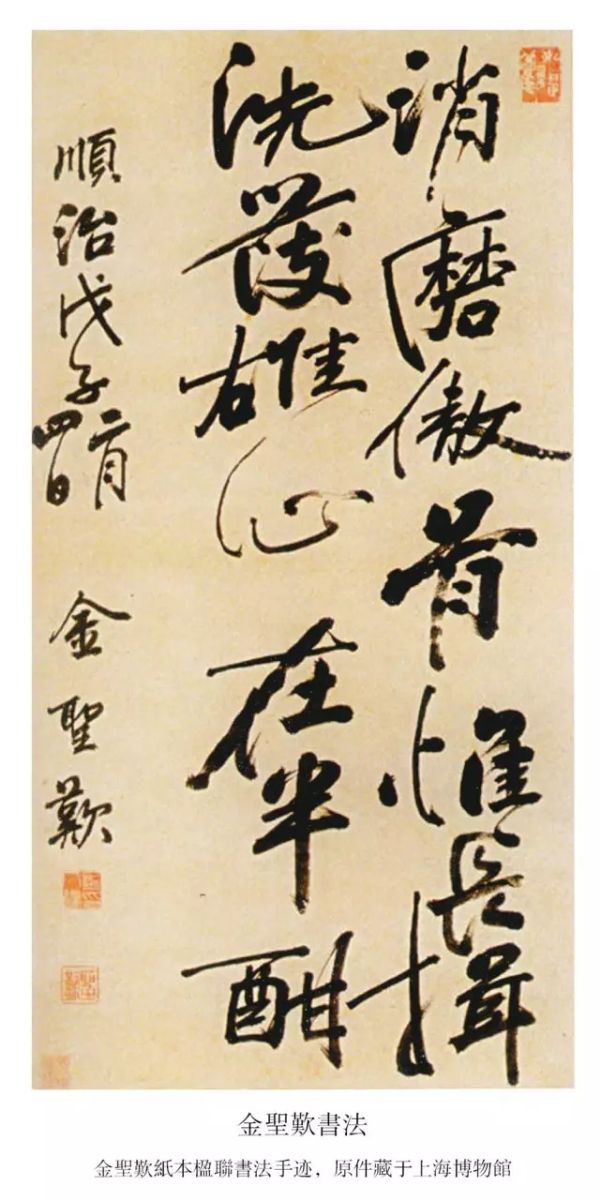 消磨傲骨惟長揖
洗發雄心在半酣
順治戊子二月
四日
金聖歎
金聖歎書法
金聖歎紙本楹聯書法手迹，原件藏于上海博物館